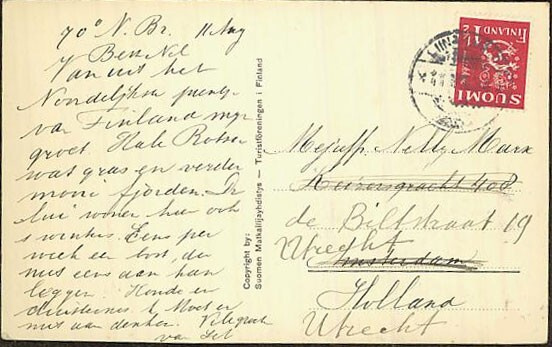 70° N. Br. 11 Aug
Van uit het
Noordelijkste
van Finland mijn
groet. Kale Rotsen
wat gras en verder
mooie fjorden. Ik
zomer hier ook
's winters. Eens per
week een boot, die
aan kan
leggen. Honde en
duisternes. Moet er
niet aan denken.
van
Copyright by:
Suomen Matkailijayhdistys — Turistföreningen i Finland
SUOMI
FINLAND 1½
Mejuffr. Nelly Marx
Keizersgracht 408
de Biltstraat 19
Utrecht
Amsterdam
Holland
Utrecht